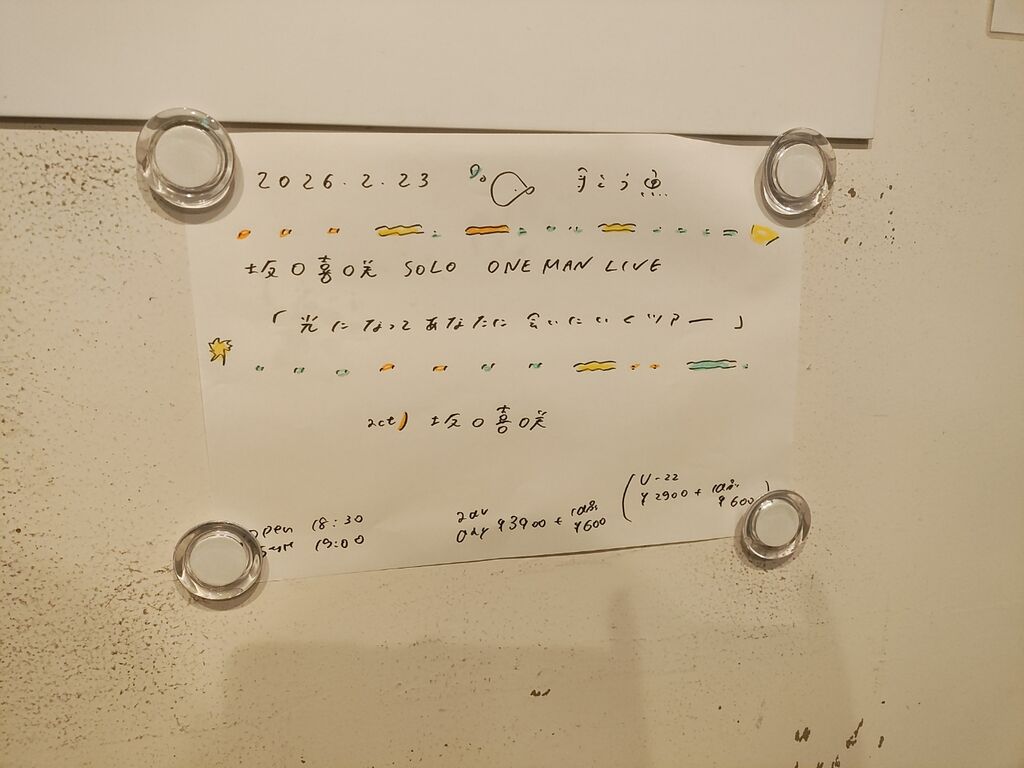 2026.2.23
坂口喜咲 SOLO ONE MAN LIVE
「光になってあなたに会いにいくツアー」
act) 坂口喜咲
open 18:30
start 19:00
adv
day ¥3900 + ¥600
(U-22
¥2900 + ¥600)